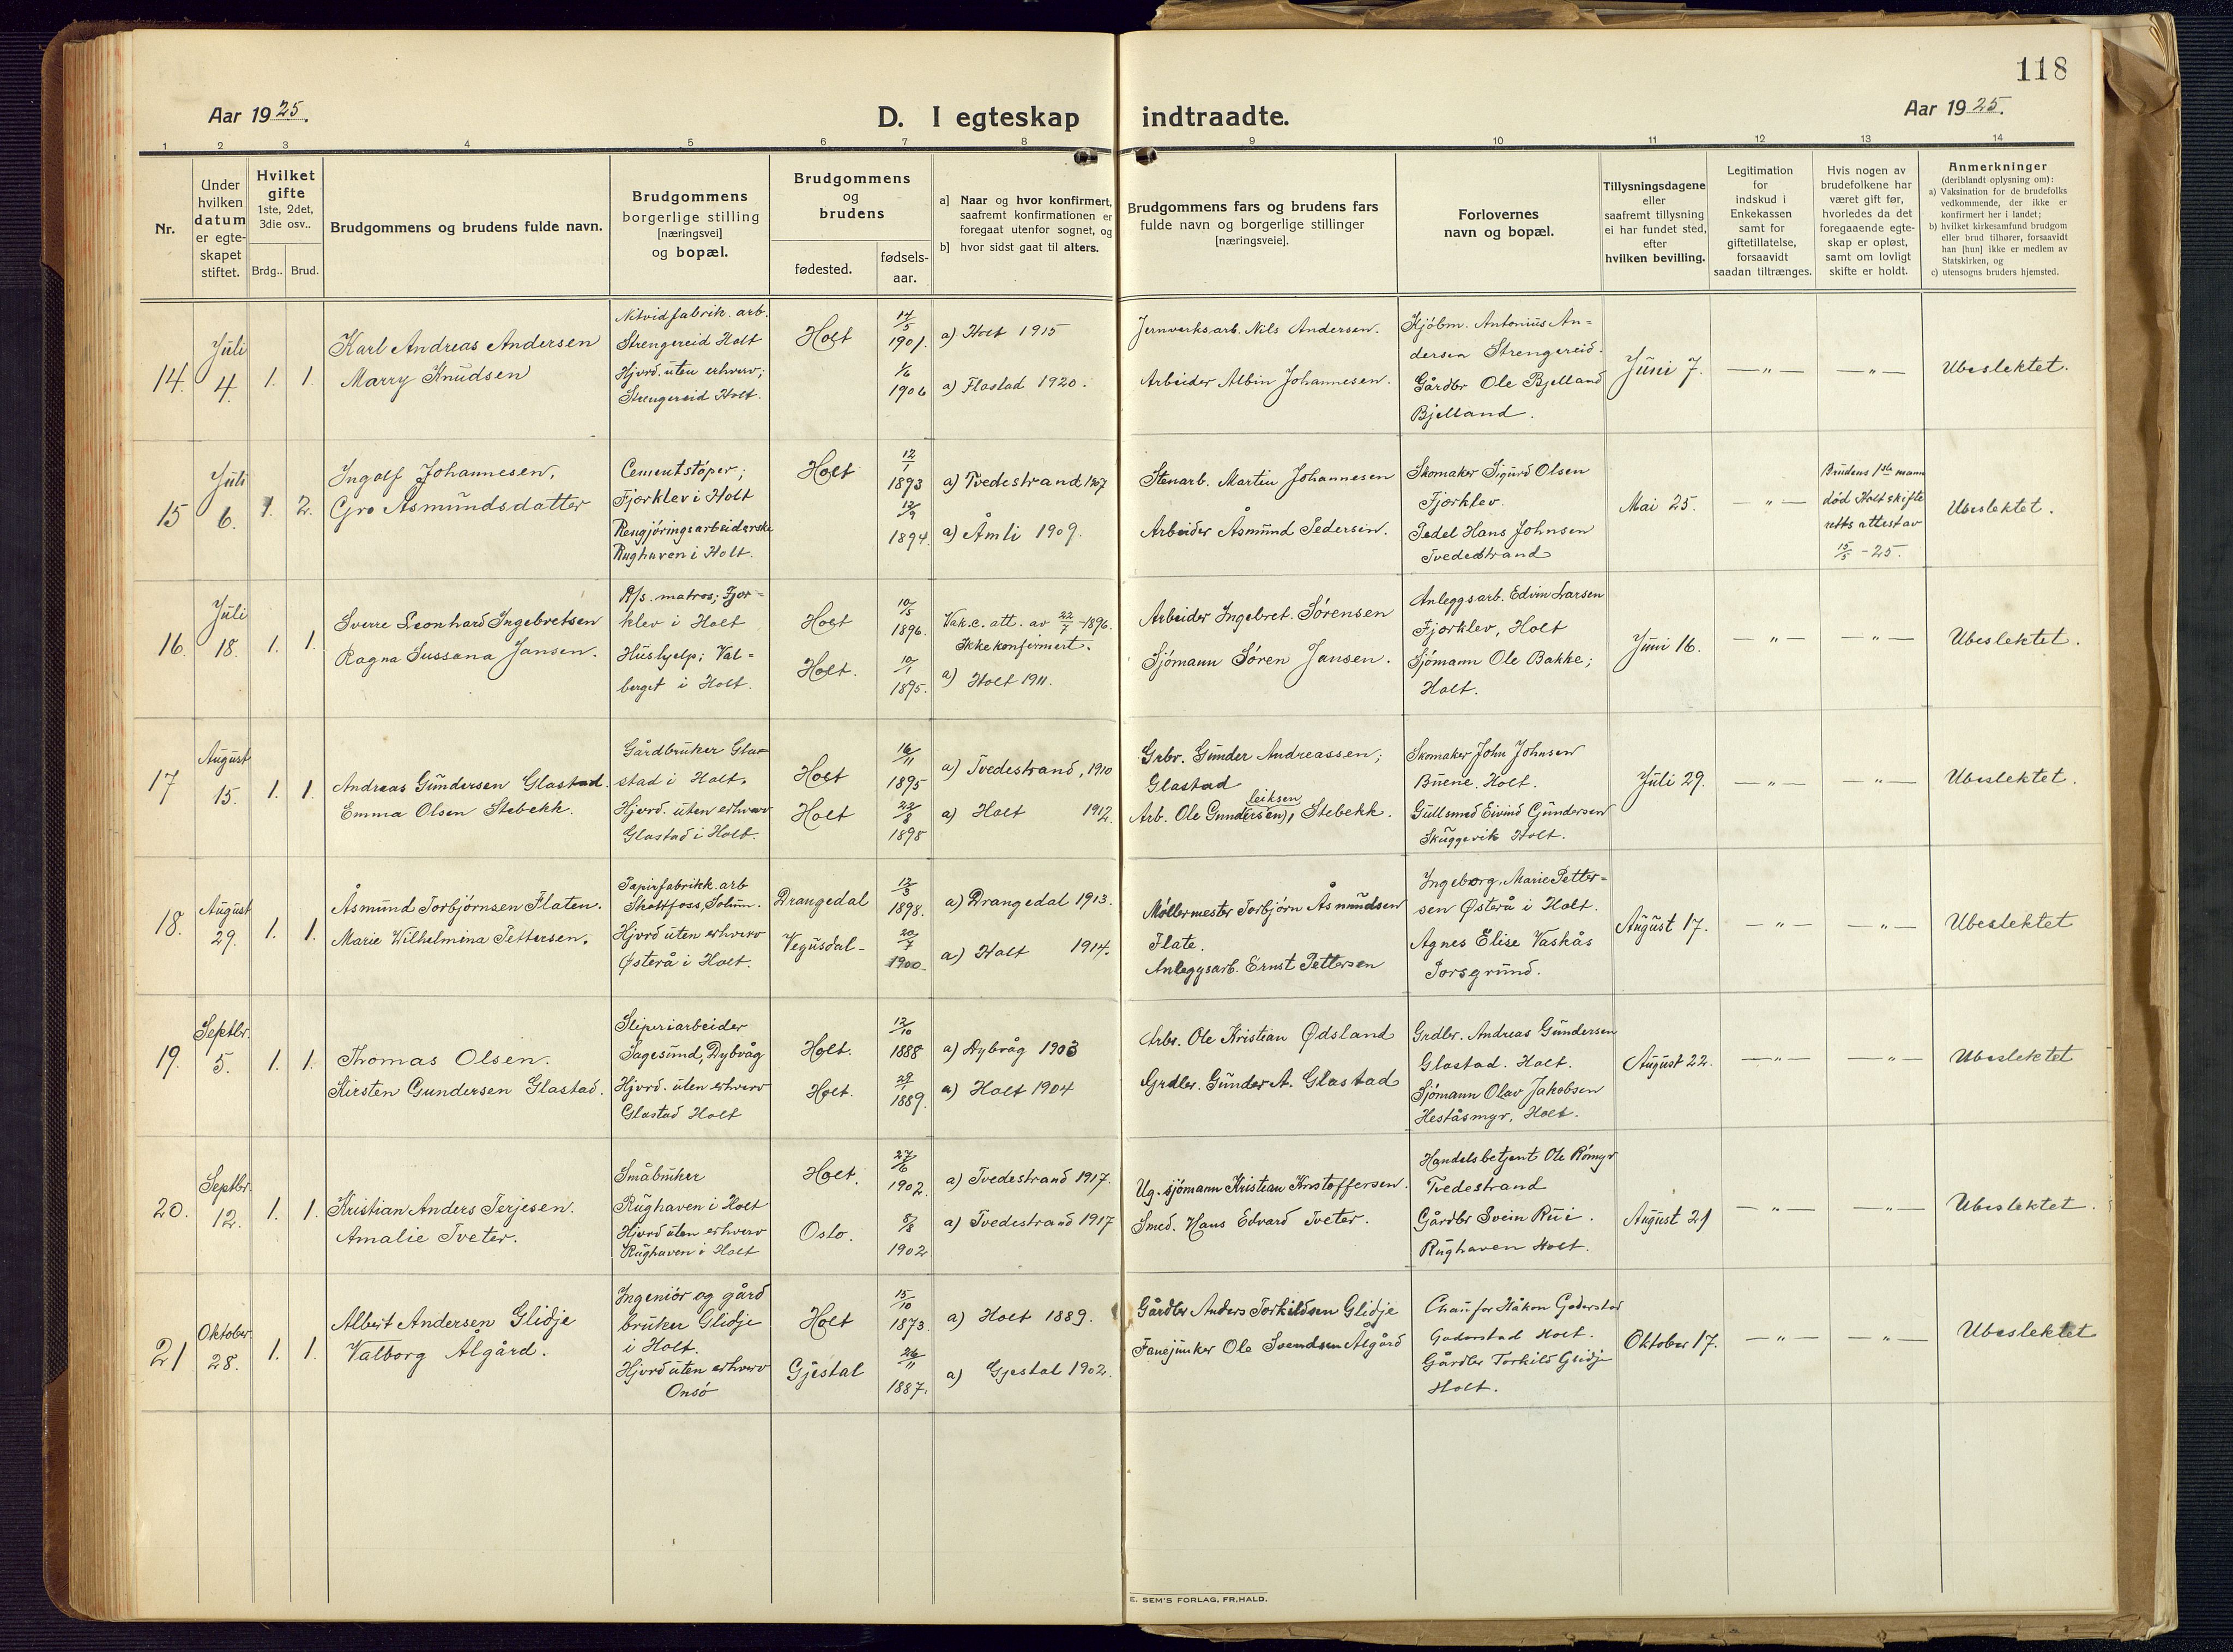 118
Aar 1925.
D. I egteskap indtraadte.
Aar 1925.
1 2 3 4 5 6 7 8 9 10 11 12 13 14
Nr.
Under
hvilken
datum
er egte-
skapet
stiftet.
Hvilket
gifte
1ste, 2det,
3die osv..
Brdg..
Brud.
Brudgommens og brudens fulde navn.
Brudgommens
borgerlige stilling
[næringsvei]
og bopæl.
Brudgommens
og
brudens
fødested.
fødsels-
aar.
a] Naar og hvor konfirmert,
saafremt konfirmationen er
foregaat utenfor sognet, og
b] hvor sidst gaat til alters.
Brudgommens fars og brudens fars
fulde navn og borgerlige stillinger
[næringsveie].
Forlovernes
navn og bopæl.
Tillysningsdagene
eller
saafremt tillysning
ei har fundet sted,
efter
hvilken bevilling.
Legitimation
for
indskud i
Enkekassen
samt for
giftetillatelse,
forsaavidt
saadan tiltrænges.
Hvis nogen av
brudefolkene har
været gift før,
hvorledes da det
foregaaende egte-
skap er opløst,
samt om lovligt
skifte er holdt.
Anmerkninger
(deriblandt oplysning om):
a) Vaksination for de brudefolks
vedkommende, der ikke er
konfirmert her i landet;
b) hvilket kirkesamfund brudgom
eller brud tilhører, forsaavidt
han [hun] ikke er medlem av
Statskirken, og
c) utensogns bruders hjemsted.
14.
Juli
4.
1.
1.
Karl Andreas Andersen
Marry Knudsen
Nitvidfabrik. arb.
Strengereid Holt
Hjvrd. uten erhverv;
Strengereid Holt.
Holt
14/5
1901.
1/6
1906
a) Holt 1915
a) Flostad 1920.
Jernverksarb. Nils Andersen.
Arbeider Albin Johannesen.
Kjøbm. Antonius An-
dersen Strengereid.
Gårdbr Ole Bjelland
Bjelland.
Juni 7.
— „ —
— „ —
Ubeslektet.
15
Juli
6.
1.
2.
Ingolf Johannesen,
Gro Asmundsdatter
Cementstøper;
Fjærklev i Holt
Rengjøringsarbeiderske
Rughaven i Holt.
Holt
12/1
1893
12/9
1894.
a) Tvedestrand 1907
a) Åmli 1909.
Stenarb. Martin Johannesen
Arbeider Åsmund Pedersen.
Skomaker Sigurd Olsen
Fjærklev.
Pedel Hans Johnsen
Tvedestrand
Mai 25.
— „ —
Brudens 1ste mann
død Holt skifte
retts attest av
15/5 - 25.
Ubeslektet.
16.
Juli
18.
1.
1.
Sverre Leonhard Ingebretsen
Ragna Sussana Jansen.
R/s. matros; Fjær-
klev i Holt
Hushjelp; Val-
berget i Holt.
Holt
Holt.
10/5
1896.
10/1
1895.
Vak.c. att. av 22/7 - 1896.
Ikke konfirmert.
a) Holt 1911.
Arbeider Ingebret. Sørensen
Sjømann Søren Jansen.
Anleggsarb. Edvin Larsen
Fjærklev, Holt
Sjømann Ole Bakke;
Holt.
Juni 16.
— „ —
— „ —
Ubeslektet.
17
August
15.
1.
1.
Andreas Gundersen Glastad.
Emma Olsen Stebekk.
Gårdbruker Gla-
stad i Holt.
Hjvrd. uten erhverv
Glastad i Holt.
Holt
Holt
16/11
1895
22/8
1898
a) Tvedestrand, 1910
a) Holt 1912.
Grbr. Gunder Andreassen;
Glastad
leiksen
Arb. Ole Gundersen), Stebekk.
Skomaker John Johnsen
Buene. Holt.
Gullsmed Eivind Gundersen
Skuggevik Holt.
Juli 29.
— „ —
— „ —
Ubeslektet.
18.
August
29.
1.
1.
Åsmund Torbjørnsen Flaten.
Marie Wilhelmina Pettersen.
Papirfabrikk. arb
Skotfoss, Solum.
Hjvrd uten erhverv
Østerå i Holt.
Drangedal
Vegusdal-
12/3
1898.
20/7
1900.
a) Drangedal 1913.
a) Holt 1914.
Møllermester Torbjørn Åsmundsen
Flate.
Anleggsarb. Ernst Pettersen
Ingeborg, Marie Petter-
sen Østerå i Holt.
Agnes Elise Vaskås
Porsgrund.
August 17.
— „ —
— „ —
Ubeslektet
19.
Septbr.
5.
1.
1.
Thomas Olsen.
Kirsten Gundersen Glastad.
Sliperiarbeider
Sagesund, Dybvåg
Hjvrd. uten erhverv
Glastad Holt
Holt.
Holt.
12/10
1888
29/1
1889.
a) Dybvåg 1903
a) Holt 1904
Arbr. Ole Kristian Ødsland
Grdbr. Gunder A. Glastad
Grdbr. Andreas Gundersen
Glastad. Holt.
Sjømann Olav Jakobsen
Heståsmyr, Holt.
August 22.
— „ —
— „ —
Ubeslektet
20.
Septbr.
12.
1.
1.
Kristian Anders Terjesen.
Amalie Tveter.
Småbruker
Rughaven i Holt
Hjvrd uten erhverv
Rughaven i Holt
Holt.
Oslo.
27/6
1902.
8/8
1902
a) Tvedestrand 1917.
a) Tvedestrand 1917
Ug. sjømann Kristian Kristoffersen.
Smed. Hans Edvard Tveter.
Handelsbetjent Ole Rømyr
Tvedestrand
Gårdbr Svein Rui.
Rughaven Holt.
August 21
— „ —
— „ —
Ubeslektet.
21
Oktober
28.
1.
1.
Albert Andersen Glidje
Valborg Ålgård.
Ingeniør og gård
bruker Glidje
i Holt.
Hjvrd uten erhverv
Onsø
Holt
Gjestal
15/10
1873.
26/11
1887.
a) Holt 1889.
a) Gjestal 1902.
Gårdbr Anders Torkildsen Glidje
Fanejunker Ole Svendsen Ålgård
Chaufør Håkon Goderstad
Goderstad Holt.
Gårdbr Torkild Glidje
Holt.
Oktober 17.
— „ —
— „ —
Ubeslektet
E. SEM'S FORLAG, FR.HALD.